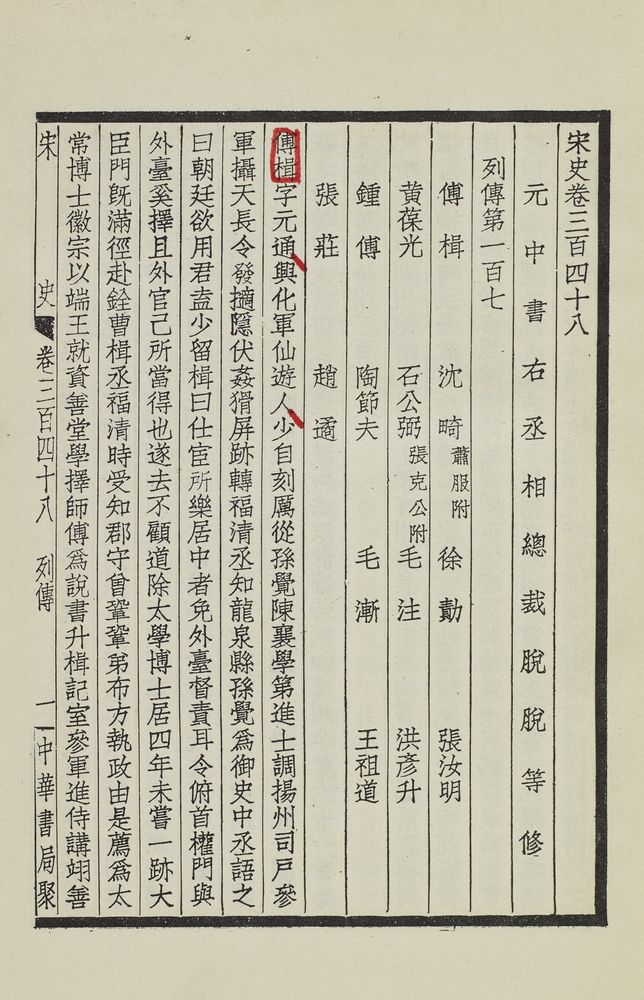 宋史卷三百四十八
元中書右丞相總裁脫脫等修
列傳第一百七
傅楫 沈畸蕭服附 徐勣 張汝明
黃葆光 石公弼張克公附 毛注 洪彥升
鍾傅 陶節夫 毛漸 王祖道
張莊 趙遹
傅楫字元通興化軍仙遊人少自刻厲從孫覺陳襄學第進士調揚州司戶參
軍攝天長令發擿隱伏姦猾屏跡轉福清丞知龍泉縣孫覺爲御史中丞語之
曰朝廷欲用君盍少留楫曰仕宦所樂居中者免外臺督責耳令俯首權門與
外臺奚擇且外官己所當得也遂去不顧道除太學博士居四年未嘗一跡大
臣門旣滿徑赴銓曹楫丞福清時受知郡守曾鞏鞏弟布方執政由是薦爲太
常博士徽宗以端王就資善堂學擇師傅爲說書升楫記室參軍進侍講翊善
宋史 卷三百四十八 列傳 一 中華書局聚